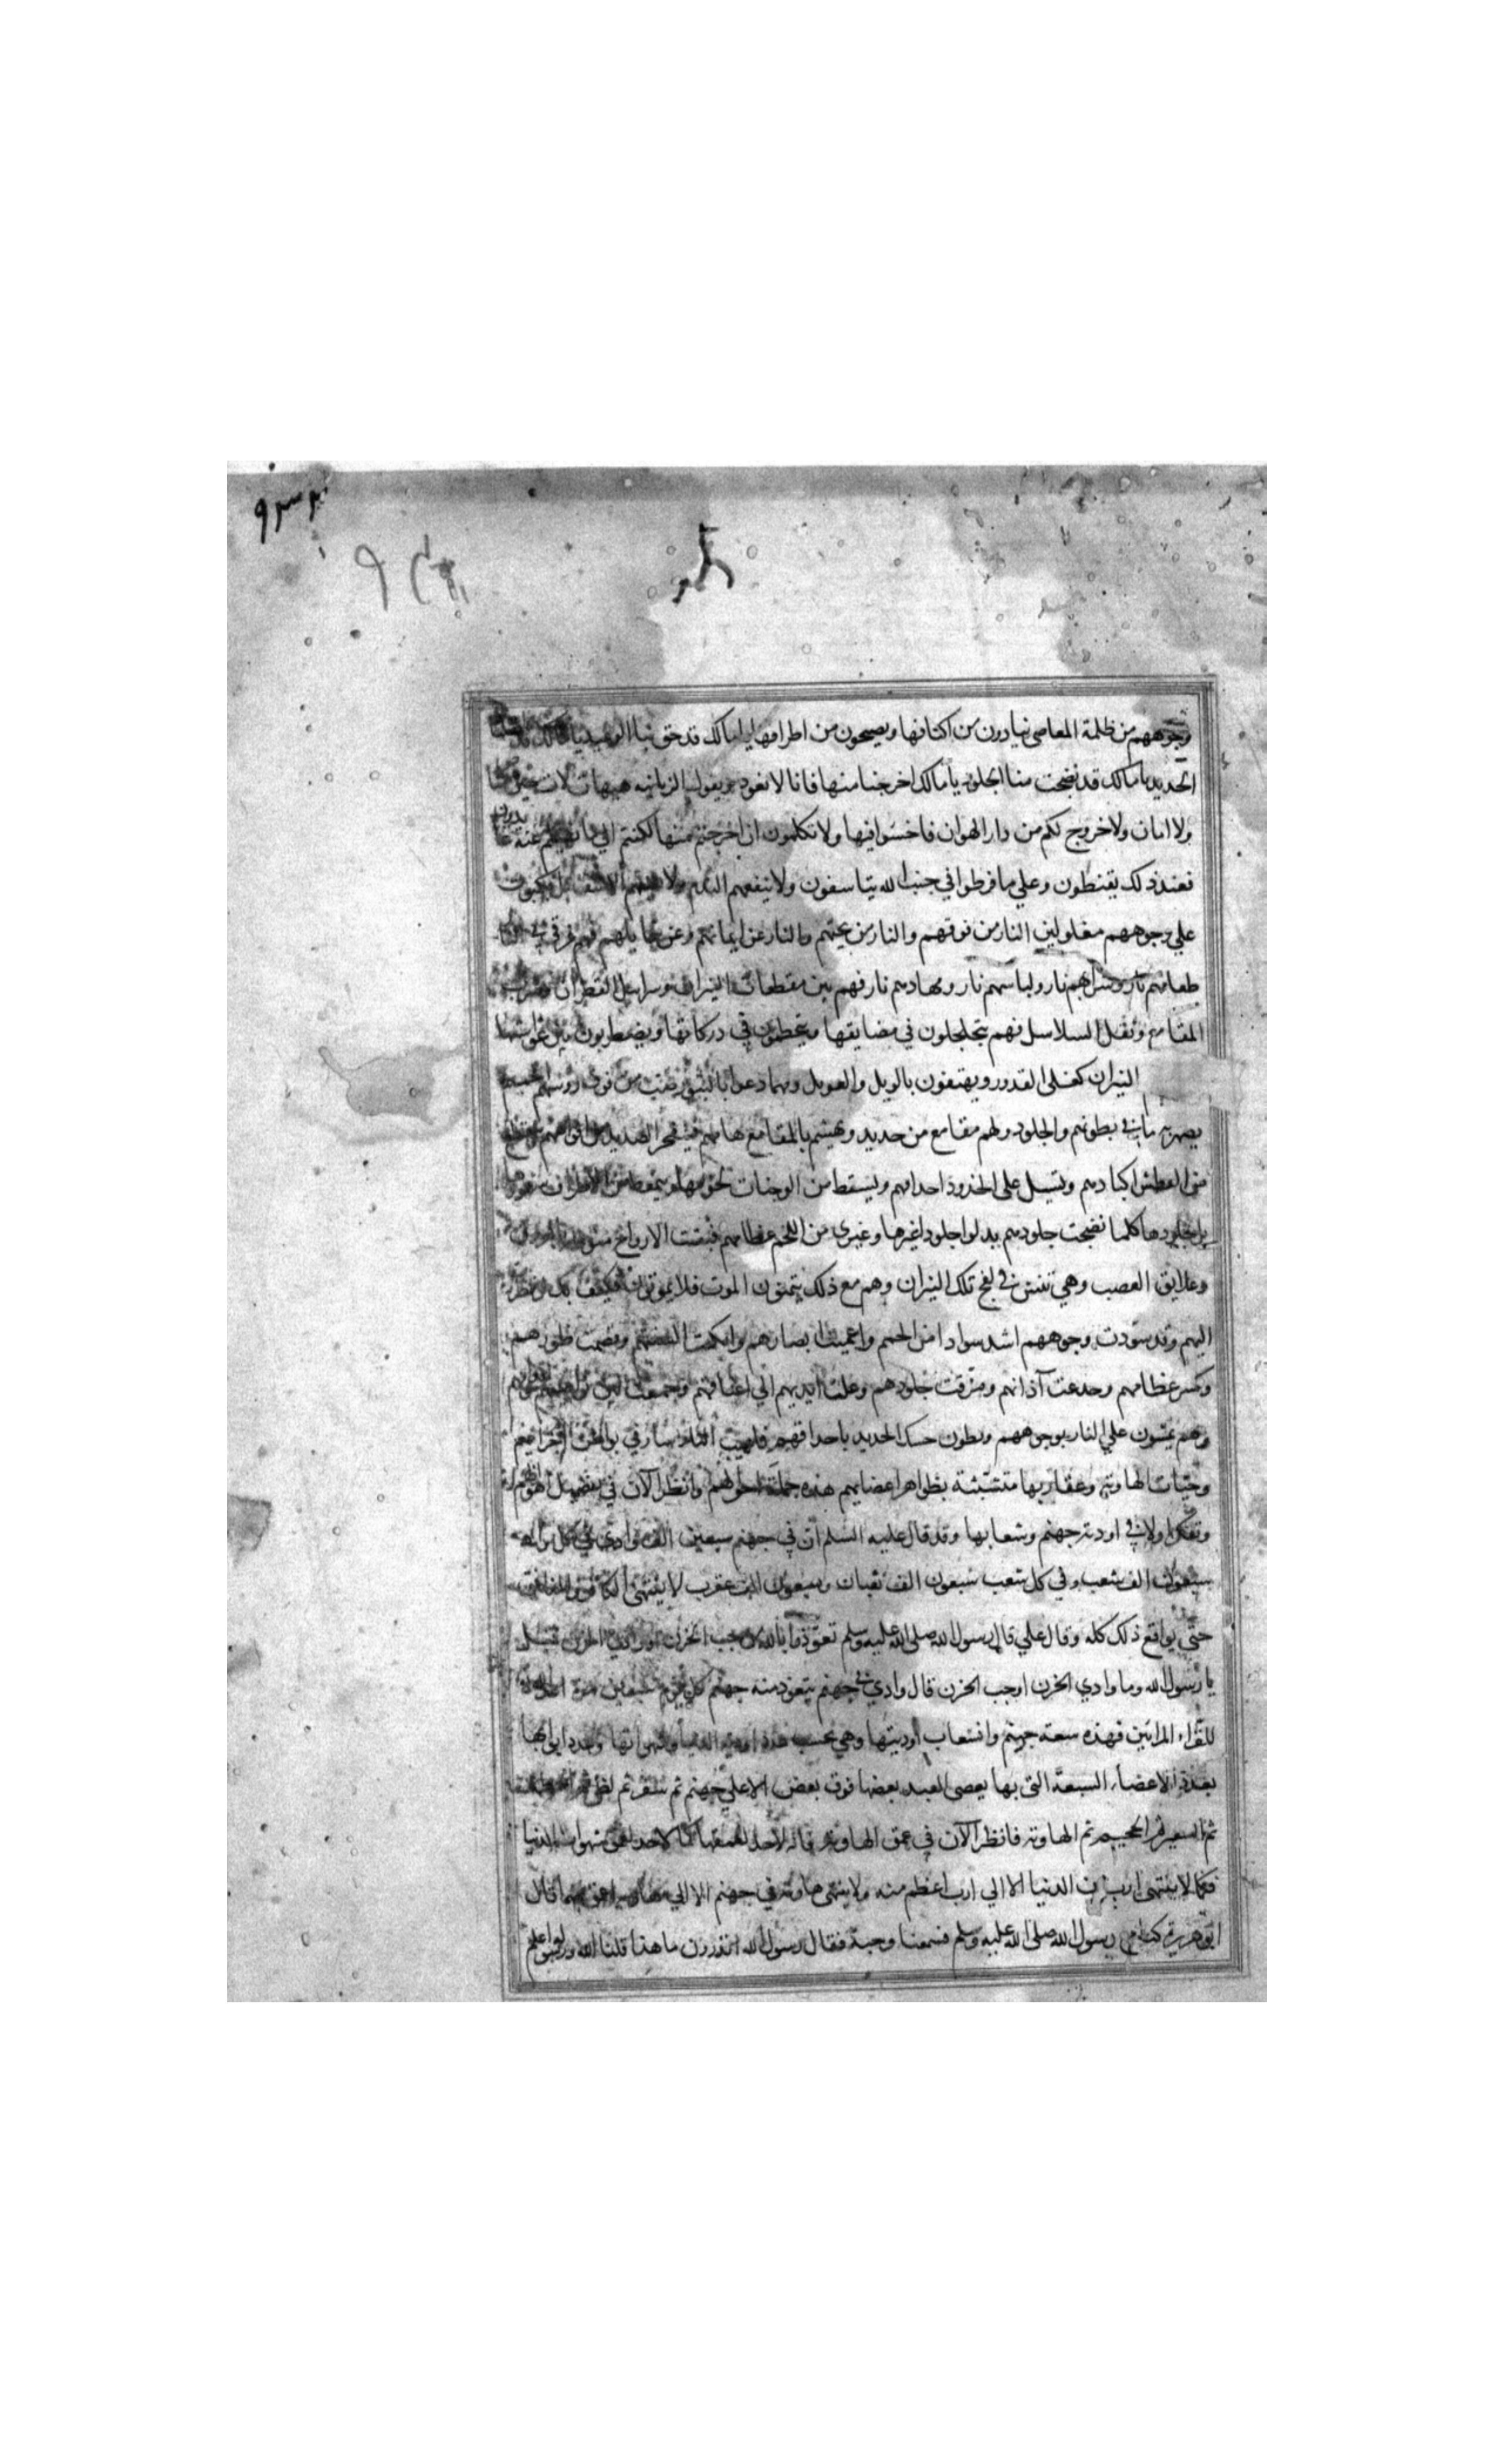 ٩٣٢
وجوههم من ظلمة المعاصي ينادون من اكنافها ويصيحون من اطرافها يا مالك قد حق علينا الوعيد يا مالك قد
الحديد يا مالك قد نضجت منا الجلود يا مالك اخرجنا منها فانا لا نعود ويقول الزبانيه هيهات لات حين
ولا امان ولا خروج لكم من دار الهوان فاخسؤا فيها ولا تكلمون ان اخرجتم منها لكنتم الي ما نهيتم عنه
فعند ذلك يقنطون وعلي ما فرطوا في جنب الله يتاسفون ولا ينفعهم الندم ولا
علي وجوههم مغلولين النار من فوقهم والنار من تحتهم والنار عن ايمانهم وعن شمايلهم فهم غرقي في النار
طعامهم نار وشرابهم نار ولباسهم نار ومهادهم نار فهم بين مقطعات النيران وسرابيل القطران وضرب
المقامع وثقل السلاسل فهم يتجلجلون في مضايقها ويتحطمون في دركاتها ويضطربون بين غواشيها
النيران كغلي القدور ويهتفون بالويل والعويل ومهما دعوا بالثبور صب من فوق رؤسهم الحميم
يصهر به ما في بطونهم والجلود ولهم مقامع من حديد وتهشم بالمقامع هامهم فيتفجر الصديد من افواههم
من العطش اكبادهم وتسيل علي الخدود احداقهم ويسقط من الوجنات لحومها ويتمعط من الاطراف شعورها
بل جلودها كلما نضجت جلودهم بدلوا جلودا غيرها وعري من اللحم عظامهم فبقيت الارواح
وعلايق العصب وهي تنش في لفح تلك النيران وهم مع ذلك يتمنون الموت فلا يموتون فكيف بك لو نظرت
اليهم وقد سودت وجوههم اشد سوادا من الحمم واعميت ابصارهم وابكمت السنتهم وقصمت ظهورهم
وكسر عظامهم وجدعت آذانهم ومزقت جلودهم وغلت ايديهم الي اعناقهم وجمعت بين نواصيهم
وهم يمشون علي النار بوجوههم ويطون حسك الحديد باحداقهم فلهيب النار سار في بواطن اجزايهم
وحيات الهاوية وعقاربها متشبثة بظواهر اعضايهم هذه جملة احوالهم وانظر الآن في تفصيل اهوالهم
وتفكر اولا في اودية جهنم وشعابها وقد قال عليه السلم ان في جهنم سبعين الف وادي في كل واد
سبعون الف شعب وفي كل شعب سبعون الف ثعبان وسبعون الف عقرب لا ينتهي الكافر والمنافق
حتي يواقع ذلك كله وقال علي قال رسول الله صلى الله عليه وسلم تعوذوا بالله من جب الحزن او وادي الحزن قيل
يا رسول الله وما وادي الحزن او جب الحزن قال وادي في جهنم يتعوذ منه جهنم كل يوم سبعين مرة اعده الله
للقراء المرائين فهذه سعة جهنم وانشعاب اوديتها وهي بحسب عدد اودية الدنيا وشهواتها وعدد ابوابها
بعدد الاعضاء السبعة التي بها يعصي العبد بعضها فوق بعض الاعلي جهنم ثم سقر ثم لظي ثم الحطمة
ثم السعير ثم الجحيم ثم الهاويه فانظر الآن في عمق الهاويه فانه لا حد لعمقها كما لا حد لعمق شهوات الدنيا
فكما لا ينتهي ارب من الدنيا الا الي ارب اعظم منه ولا ينتهي هاوية في جهنم الا الي هاوية اعمق منها قال
ابو هريرة كنا مع رسول الله صلى الله عليه وسلم فسمعنا وجبة فقال رسول الله اتدرون ما هذا قلنا الله ورسوله اعلم